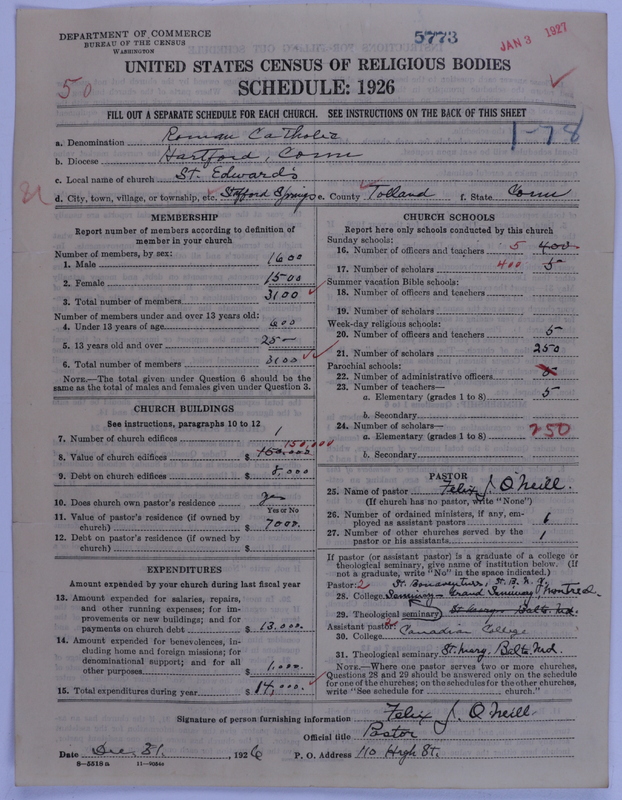 DEPARTMENT OF COMMERCE
BUREAU OF THE CENSUS
WASHINGTON
5773
JAN 3 1927
UNITED STATES CENSUS OF RELIGIOUS BODIES
50
SCHEDULE: 1926
FILL OUT A SEPARATE SCHEDULE FOR EACH CHURCH. SEE INSTRUCTIONS ON THE BACK OF THIS SHEET
1-78
a. Denomination Roman Catholic
b. Diocese Hartford, Conn
c. Local name of church St. Edward's
d. City, town, village, or township, etc. Stafford Springs e. County Tolland f. State Conn
MEMBERSHIP
Report number of members according to definition of
member in your church
Number of members, by sex:
1. Male 1600
2. Female 1500
3. Total number of members 3100
Number of members under and over 13 years old:
4. Under 13 years of age 600
5. 13 years old and over 25—
6. Total number of members 3100
NOTE.—The total given under Question 6 should be the
same as the total of males and females given under Question 3.
CHURCH BUILDINGS
See instructions, paragraphs 10 to 12
7. Number of church edifices 1
150,000
8. Value of church edifices $ 150,000
9. Debt on church edifices $ 8,000
10. Does church own pastor's residence yes
Yes or No
11. Value of pastor's residence (if owned by
church) $ 7000.
12. Debt on pastor's residence (if owned by
church) $
EXPENDITURES
Amount expended by your church during last fiscal year
13. Amount expended for salaries, repairs,
and other running expenses; for im-
provements or new buildings; and for
payments on church debt $ 13.000.
14. Amount expended for benevolences, in-
cluding home and foreign missions; for
denominational support; and for all
other purposes $ 1.000.
15. Total expenditures during year $ 14,000.
CHURCH SCHOOLS
Report here only schools conducted by this church
Sunday schools:
16. Number of officers and teachers 5 400
17. Number of scholars 400 5
Summer vacation Bible schools:
18. Number of officers and teachers
19. Number of scholars
Week-day religious schools:
20. Number of officers and teachers 5
21. Number of scholars 250
Parochial schools:
22. Number of administrative officers
23. Number of teachers—
a. Elementary (grades 1 to 8) 5
b. Secondary
24. Number of scholars—
a. Elementary (grades 1 to 8) 250
b. Secondary
PASTOR
25. Name of pastor Felix J. O'Neill.
(If church has no pastor, write "None")
26. Number of ordained ministers, if any, em-
ployed as assistant pastors 1
27. Number of other churches served by the
pastor or his assistants 1
If pastor (or assistant pastor) is a graduate of a college or
theological seminary, give name of institution below. (If
not a graduate, write "No" in the space indicated.)
Pastor: 2 St. Bonaventure, St. B. N. Y.
28. College Seminary - Grand Seminary Montreal.
29. Theological seminary St. Marys Balto. Md.
Assistant pastor:
30. College Canadian College
31. Theological seminary St. Mary, Balto. Md.
NOTE.—Where one pastor serves two or more churches,
Questions 28 and 29 should be answered only on the schedule
for one of the churches; on the schedules for the other churches,
write "See schedule for church."
Signature of person furnishing information Felix J. O'Neill.
Official title Pastor
Date Dec. 31, 1926 P. O. Address 110 High St.
8—5518a 11—9054a